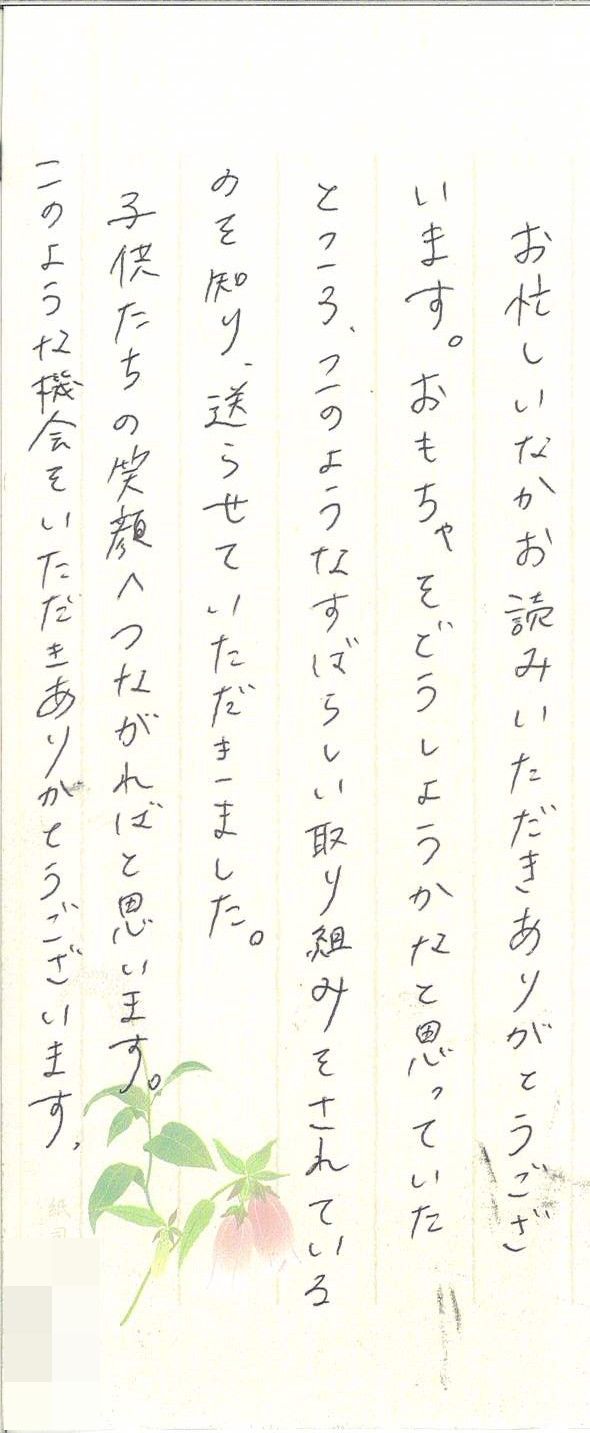 お忙しいなかお読みいただきありがとうござ
います。おもちゃをどうしようかなと思っていた
ところ、このようなすばらしい取り組みをされている
のを知り、送らせていただきました。
子供たちの笑顔へつながればと思います。
このような機会をいただきありがとうございます。